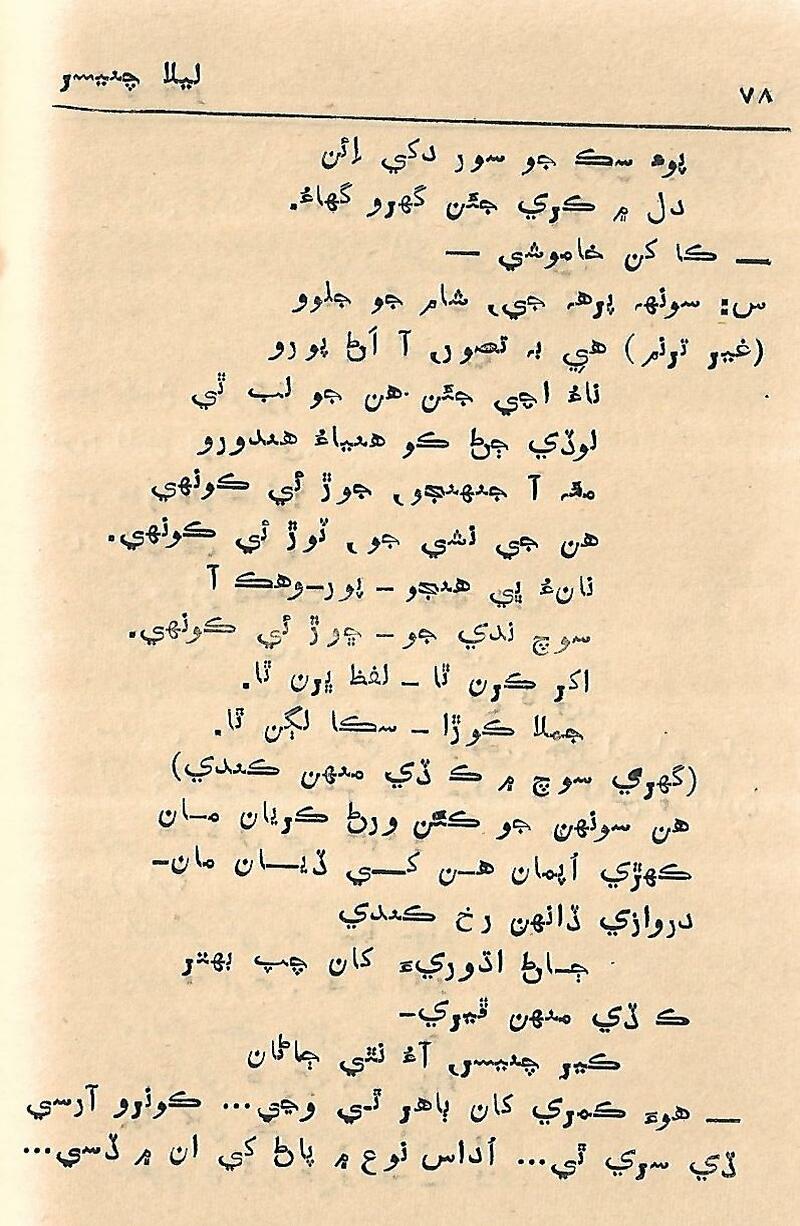 ليلا چنيسر
٧٨
پوءِ سڪ جو سور دکي اِئن
دل ۾ ڪري جئن گهرو گهاءُ.
— ڪا کن خاموشي —
س: سونهہ پرهہ جي، شام جو جلوو
(غير ترنم) هي بہ تصور، آ اَڻ پورو
ناءُ اچي جئن هن جو لب تي
لوڏي ڄڻ ڪو هنياءُ هندورو
مٿہ آ جنهنجو، جوڙ ئي ڪونهي
هن جي نشي جو، ٽوڙ ئي ڪونهي.
نانءُ ڀي هنجو – پور–وهڪ آ
سوچ ندي جو – ڇوڙ ئي ڪونهي.
اکر ڪرن ٿا – لفظ ڀرن ٿا.
جملا ڪوڙا – سڪا لڳن ٿا.
(گهري سوچ ۾ ڪ ڏي منهن ڪندي)
هن سونهن جو ڪٿن ورڻ ڪريان مـان
ڪهڙي اُپمان هـن کـي ڏيـان مان–
دروازي ڏانهن رخ ڪندي
ڄـاڻ اڌوريءَ کان چپ بهتر
ڪ ڏي منهن ڦيري–
ڪير چنيسر، آءُ نٿي ڄاڻان
— هوءَ ڪمري کان ٻاهر ٿي وڃي... ڪونرو آرسي
ڏي سري ٿي... اُداس نوع ۾ پاڻ کي ان ۾ ڏسي...